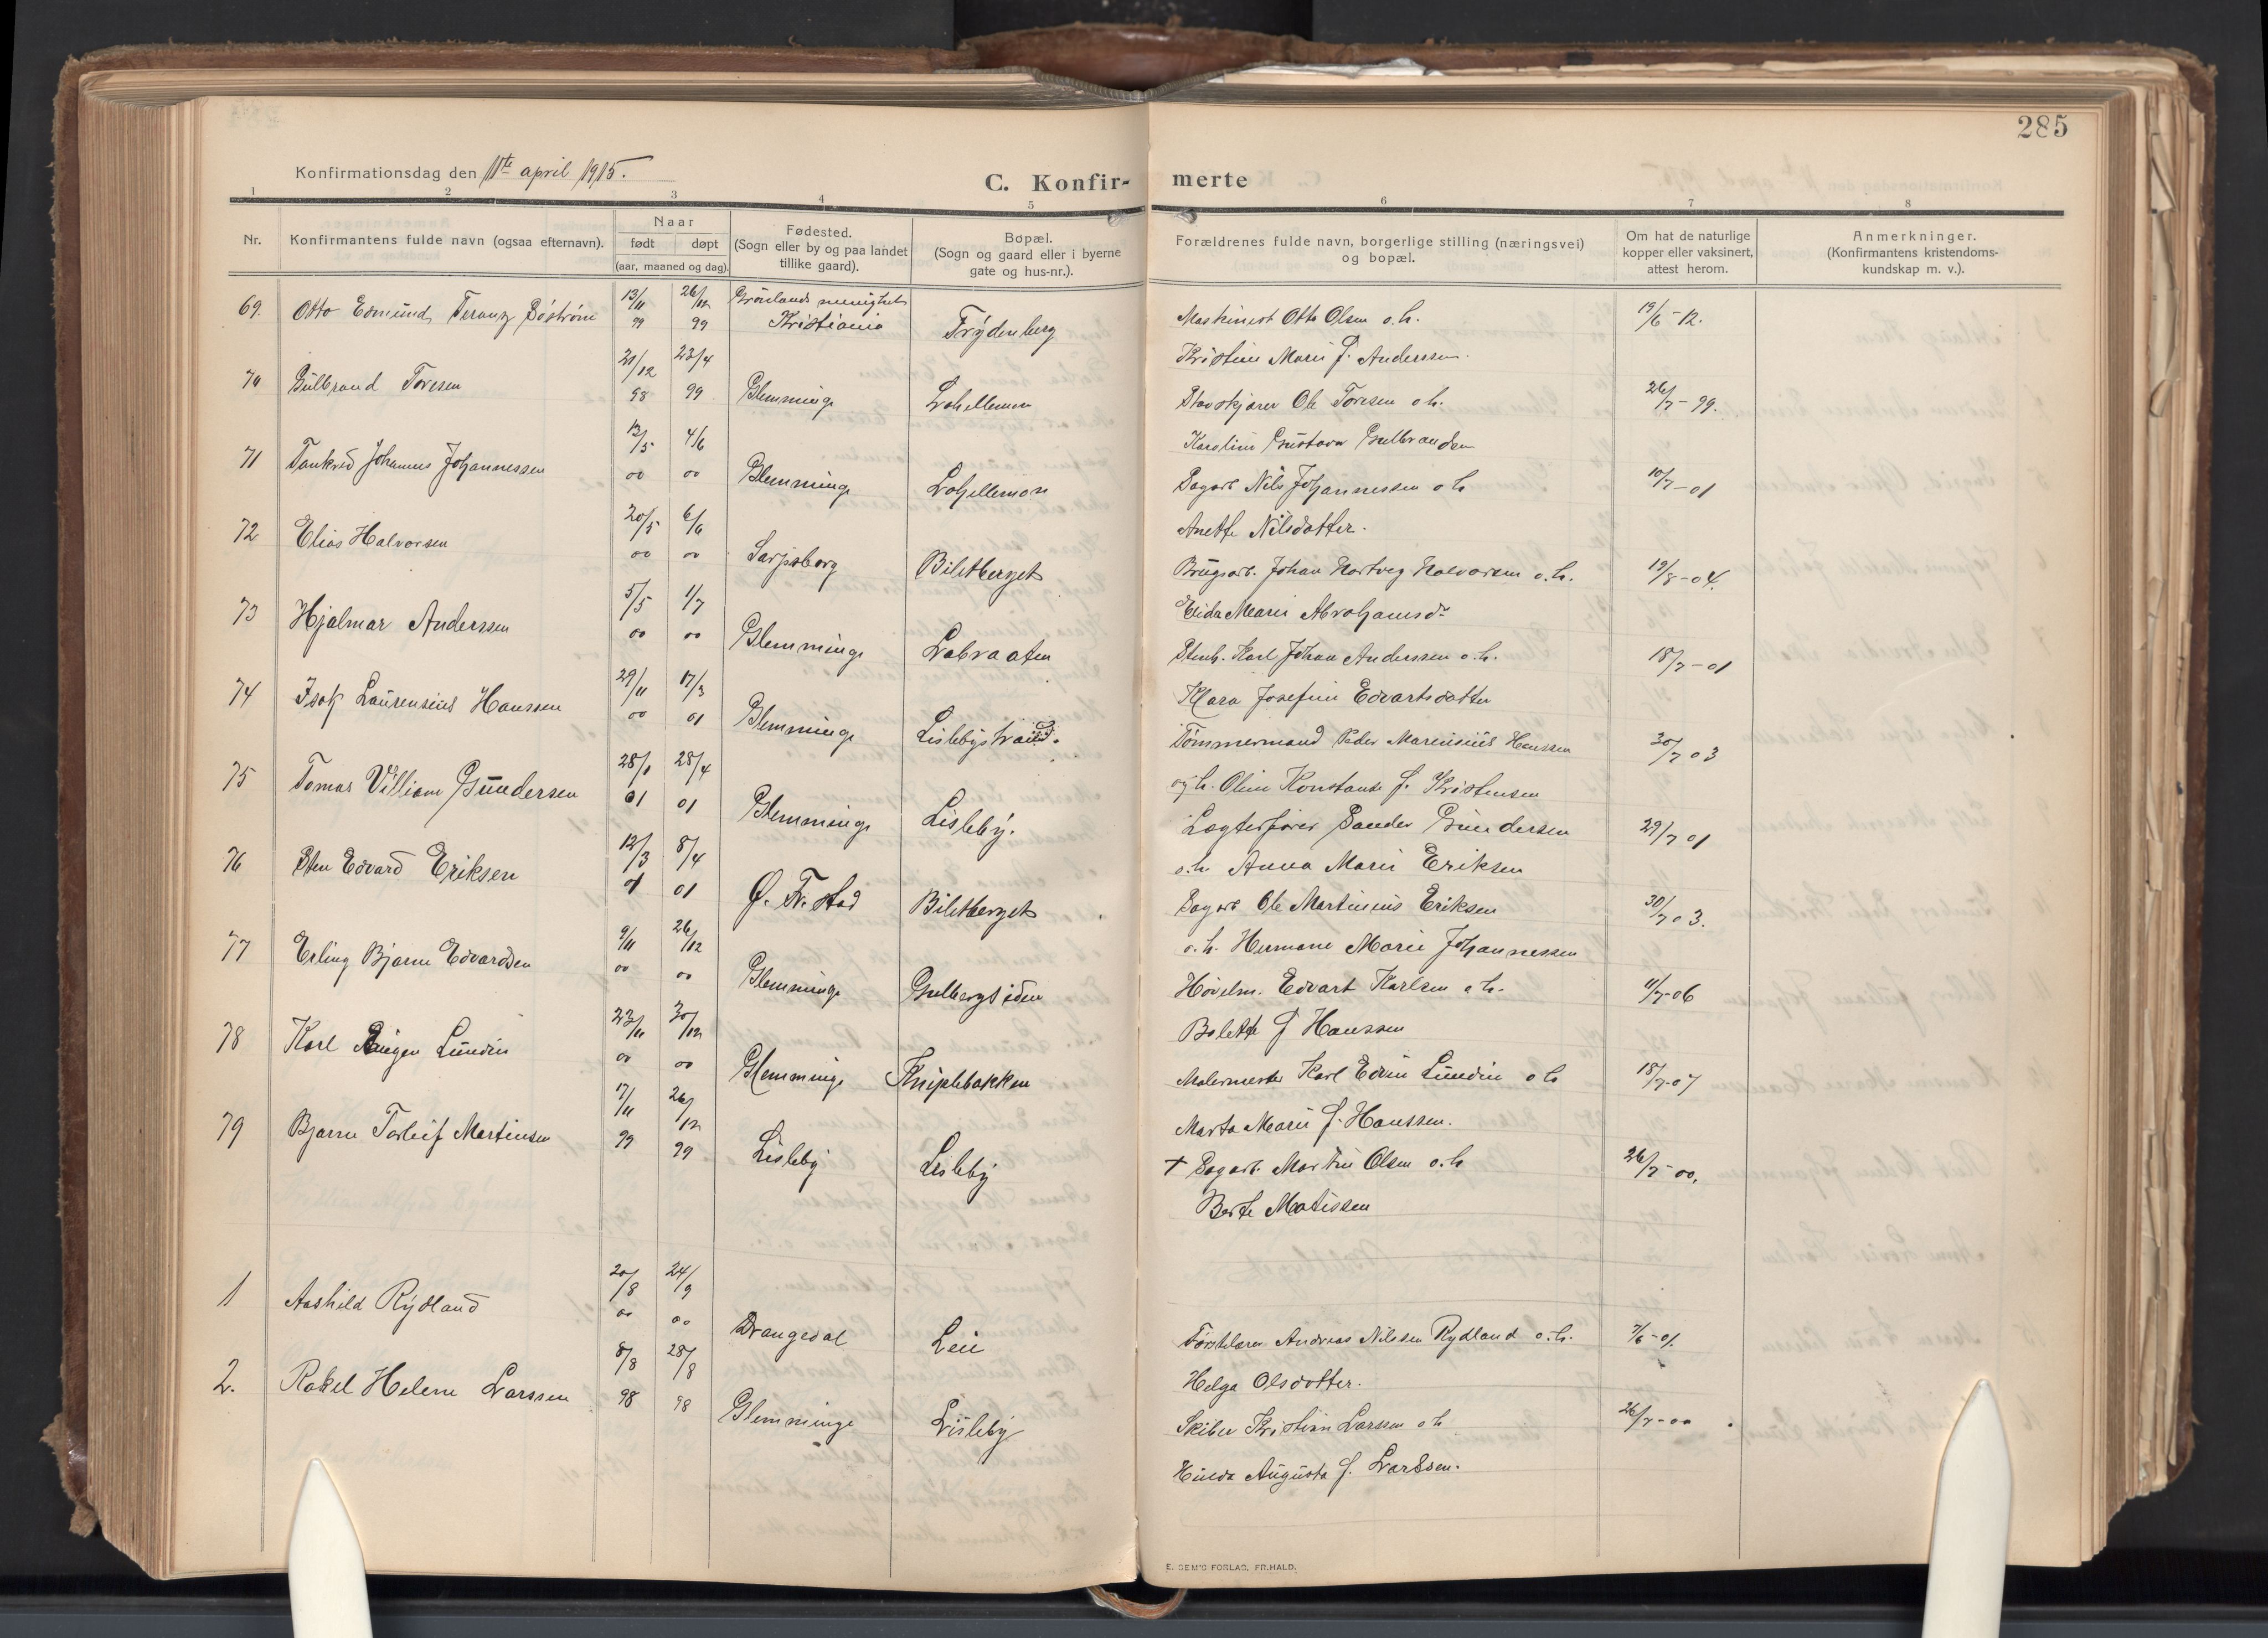 285
Konfirmationsdag den 11te april 1915.
C. Konfir- merte
1 2 3 4 5 6 7 8
Nr.
Konfirmantens fulde navn (ogsaa efternavn).
Naar
født døpt
(aar, maaned og dag).
Fødested.
(Sogn eller by og paa landet
tillike gaard).
Bopæl.
(Sogn og gaard eller i byerne
gate og hus-nr.).
Forældrenes fulde navn, borgerlige stilling (næringsvei)
og bopæl.
Om hat de naturlige
kopper eller vaksinert,
attest herom.
Anmerkninger.
(Konfirmantens kristendoms-
kundskap m. v.).
69. Otto Edmund 13/11 99 26/12 99 Grönlands menighet Kristiania Trydenberg Maskinist Otto Olsen o.h. 19/6-12.
Kristine Marie f. Anderssen.
70 Gulbrand Toresen 21/12 98 23/4 99 Glemminge Lahellemon Stavskjærer Ole Toresen o.h. 26/7-99.
Karoline Gustava Gulbrandsen
71 Tankred Johannes Johannessen 13/5 00 4/6 00 Glemminge Lahellemon Sagarb. Nils Johannessen o.h. 10/7-01
Anette Nilsdatter.
72 Elias Halvorsen 20/5 00 6/6 00 Sarpsborg Biletberget Brugsarb. Johan Hartvig Halvorsen o.h. 19/8-04.
Elida Marie Abrahamsdr
73 Hjalmar Anderssen 5/5 00 1/7 00 Glemminge Labraaten Stenh. Karl Johan Anderssen o.h. 18/7-01
Klara Josefine Edvartsdatter
74 Isak Laurensius Hanssen 29/11 00 17/3 01 Glemminge Lislebystrand. Tömmermand Peder Marensius Hanssen 30/7 03
og h. Oline Konstanse f. Kristensen
75 Tomas Villiam Gundersen 28/1 01 28/4 01 Glemminge Lisleby. Lægterfører Sander Gundersen 29/7 01
o.h. Anna Marie Eriksen
76 Sten Edvard Eriksen 12/3 01 8/4 01 Ø. Fr.stad Biletberget Sagarb Ole Martinius Eriksen 30/7 03.
o.h. Hermane Marie Johannessen
77 Erling Bjarne Edvardsen 9/11 00 26/12 00 Glemminge Gulbergsiden Høvelm. Edvart Karlsen o.h. 11/7-06
Bolette f Hanssen
78 Karl Eugen Lundin 23/11 00 30/12 00 Glemminge Kniplebakken Malermester Karl Edvin Lundin o.h. 18/7-07
Marta Marie f. Hanssen.
79 Bjarne Torleif Martinsen 17/11 99 26/12 99 Lisleby Lisleby + Sagarb. Martin Olsen o.h. 26/7-00.
Berte Matissen
1 Aashild Rydland 20/8 00 24/9 00 Drangedal Leie Førstelærer Andreas Nilssen Rydland o.h. 7/6-01.
Helga Olsdatter.
2. Rakel Helene Larssen 8/8 98 28/8 98 Glemminge Lisleby Skiber Kristian Larssen o.h. 26/7-00
Hulda Augusta f. Larssen.
E. SEM'S FORLAG, FR.HALD.